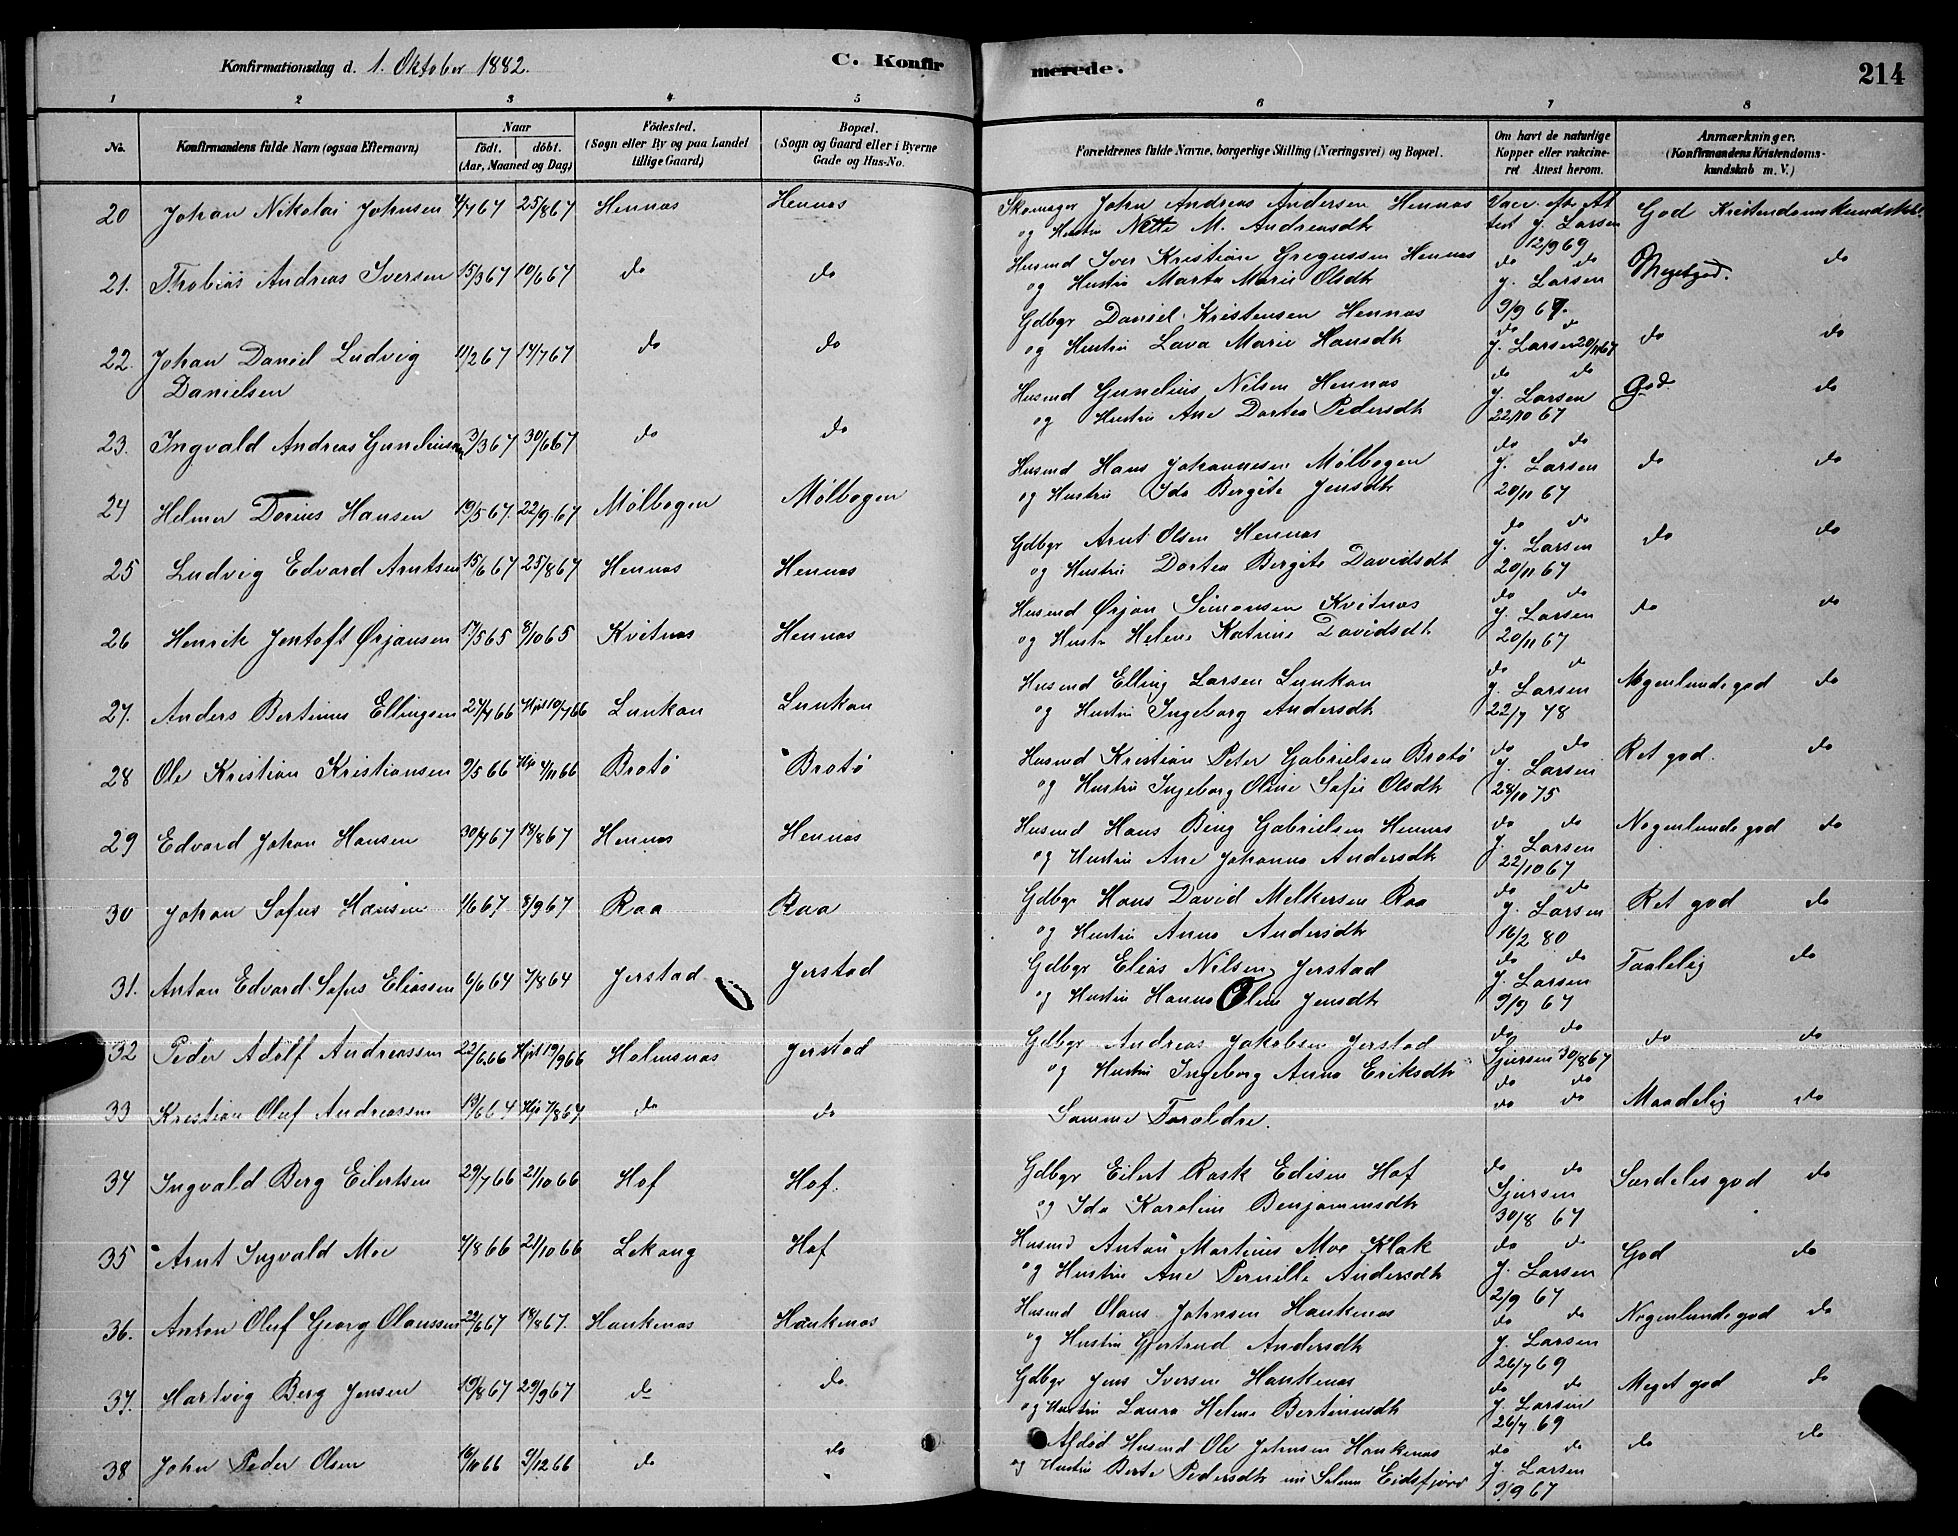 Konfirmationsdag d. 1. Oktober 1882.
C. Konfir
merede.
214
1 2 3 4 5 6 7 8
No.
Konfirmandens fulde Navn (ogsaa Efternavn)
Naar
födt. döbt.
(Aar, Maaned og Dag)
Födested.
(Sogn eller By og paa Landet
tillige Gaard)
Bopæl.
(Sogn og Gaard eller i Byerne
Gade og Hus-No.
Forældrenes fulde Navne, borgerlige Stilling (Næringsvei) og Bopæl.
Om havt de naturlige
Kopper eller vakcine-
ret Attest herom.
Anmærkninger.
(Konfirmandens Kristendoms-
kundskab m. V.)
20 Johan Nikolai Johnsen 4/767 25/867 Hennæs Hennæs
21. Thobias Andreas Iversen 15/367 10/667 do do
22. Johan Daniel Ludvig 11/267 14/767 do do
Danielsen
23. Ingvald Andreas Guneliussen 3/367 30/667 do do
24 Helmer Dorius Hansen 19/567. 22/967 Mølbogen Mølbogen
25 Ludvig Edvard Arntsen 15/667 25/867 Hennæs Hennæs
26 Henrik Jentoft Ørjansen 17/565 8/1065 Kvitnæs Hennæs
27. Anders Bertinus Ellingsen 27/466 Hjd 10/766 Lunkan Lunkan
28 Ole Kristian Kristiansen 9/566 Hjd 4/1166 Brotø Brotø
29 Edvard Johan Hansen 30/467 18/867 Hennæs Hennæs
30 Johan Sofus Hansen 1/667 8/967 Raa Raa
31. Anton Edvard Sofus Eliassen 6/664 7/864 Jerstad Jerstad
32 Peder Adolf Andreassen 22/666 Hjd 19/966 Holmsnæs Jerstad
33 Kristian Oluf Andreassen 19/664 Hjd 7/864 do do
34 Ingvald Berg Eilertsen 29/766 21/1066 Hof Hof.
35 Arnt Ingvald Moe 7/866 21/1066 Lekang Hof
36. Anton Oluf Georg Olaussen 22/667 18/867. Haukenæs Haukenæs
37. Hartvig Berg Jensen 19/867 29/967 do do
38 John Peder Olsen 16/1066 9/1266 do do
Skomager John Andreas Andersen Hennæs Vacc. efter At God Kristendomskundskab.
og Hustru Nette M. Andreasdtr test J. Larsen
12/969
Husmd Iver Kristian Gregussen Hennæs do do Megetgod. do
og Hustru Marta Marie Olsdtr J. Larsen
9/9 67.
Gdbgr Daniel Kristensen Hennæs do do do do
og Hustru Lava Marie Hansdtr J. Larsen 20/1167
Husmd Gunelius Nilsen Hennæs do do God. do
og Hustru Ane Dortea Pedersdtr J. Larsen
22/10 67
Husmd Hans Johannesen Mølbogen do do do do
og Hustru Ida Bergite Jensdtr J. Larsen
20/11 67
Gdbgr Arnt Olsen Hennæs do do do do
og Hustru Dortea Bergite Davidsdtr J. Larsen
20/11 67
Husmd Ørjan Simonsen Kvitnæs do do do do
og Hustr Helene Katrine Davidsdtr J. Larsen
20/11 67
Husmd Elling Larsen Lunkan do do Nogenlunde god do
og Hustru Ingeborg Andersdtr J. Larsen
22/7 78
Husmd Kristian Peter Gabrielsen Brotø do do Ret god. do
og Hustru Ingeborg Oline Sofie Olsdtr J. Larsen
28/10 75
Husmd Hans Bing Gabrielsen Hennæs do do Nogenlunde god do
og Hustru Ane Johanna Andersdtr J. Larsen
22/1067
Gdbgr Hans David Melkersen Raa do do Ret god do
og Hustru Anna Andersdtr J. Larsen
16/2 80
Gdbgr Elias Nilsen Jerstad do do Taalelig do
og Hustru Hanna Oline Jensdtr J. Larsen
9/9 67
Gdbgr Andreas Jakobsen Jerstad do do do do
og Hustru Ingeborg Anna Eriksdtr Sjursen 30/867
do do
Samme Forældre. do do Maadelig do
Gdbgr Eilert Rask Edisen Hof do do Særdeles god do
og Ida Karoline Benjaminsdtr Sjursen
30/8 67
Husmd Anton Martinus Moe Klak do do God do
og Hustru Ane Pernille Andersdtr J. Larsen
2/9 67
Husmd Olaus Johnsen Haukenæs do do Nogenlunde god do
og Hustru Gjertrud Andersdtr J. Larsen
26/7 69
Gdbgr Jens Iversen Haukenæs do do Meget god do
og Hustru Laura Helene Bertinusdtr J. Larsen
26/7 69
Afdød Husmd Ole Johnsen Haukenæs do do do do
og Hustru Berte Pedersdtr nu Eidsfjord J. Larsen
9/9 67